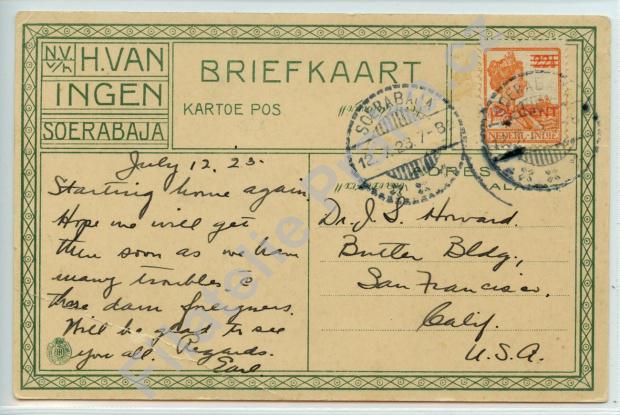 N.V. v/h H. VAN INGEN
SOERABAJA
BRIEFKAART
KARTOE POS
SOERABAJA
12.7.23.7-8
CENT
NEDERL-INDIE
ADRES
ALA
July 12. 23.
Starting home again
Hope we will get
there soon as we have
many troubles c
these darn foreigners.
Will be glad to see
you all. Regards.
Earl
Dr. J. S. Howard.
Butler Bldg.,
San Francisco.
Calif.
U.S.A.